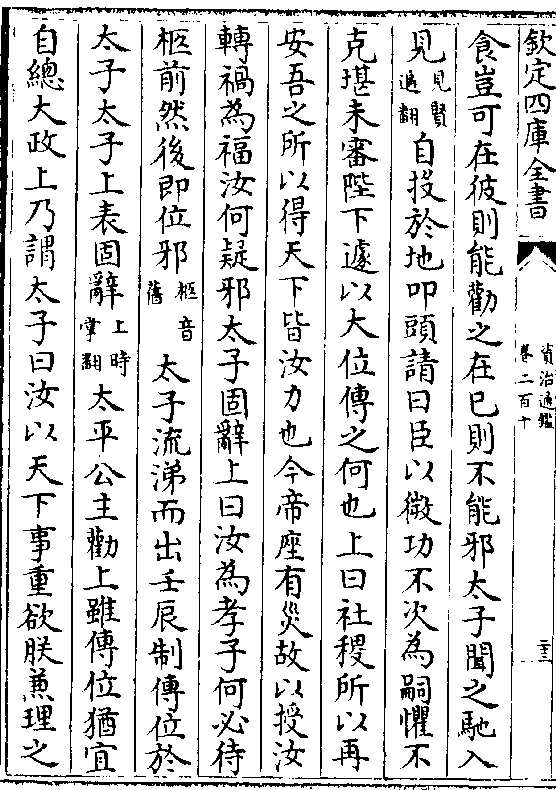 欽定四庫全書
資治通鑑
卷二百十
三十三
食豈可在彼則能勸之在已則不能邪太子聞之馳入
見見賢遍翻自投於地叩頭請曰臣以微功不次為嗣懼不
克堪未審陛下遽以大位傳之何也上曰社稷所以再
安吾之所以得天下皆汝力也今帝座有災故以授汝
轉禍為福汝何疑邪太子固辭上曰汝為孝子何必待
柩前然後即位邪柩音舊太子流涕而出壬辰制傳位於
太子太子上表固辭上時掌翻太平公主勸上雖傳位猶宜
自總大政上乃謂太子曰汝以天下事重欲朕兼理之